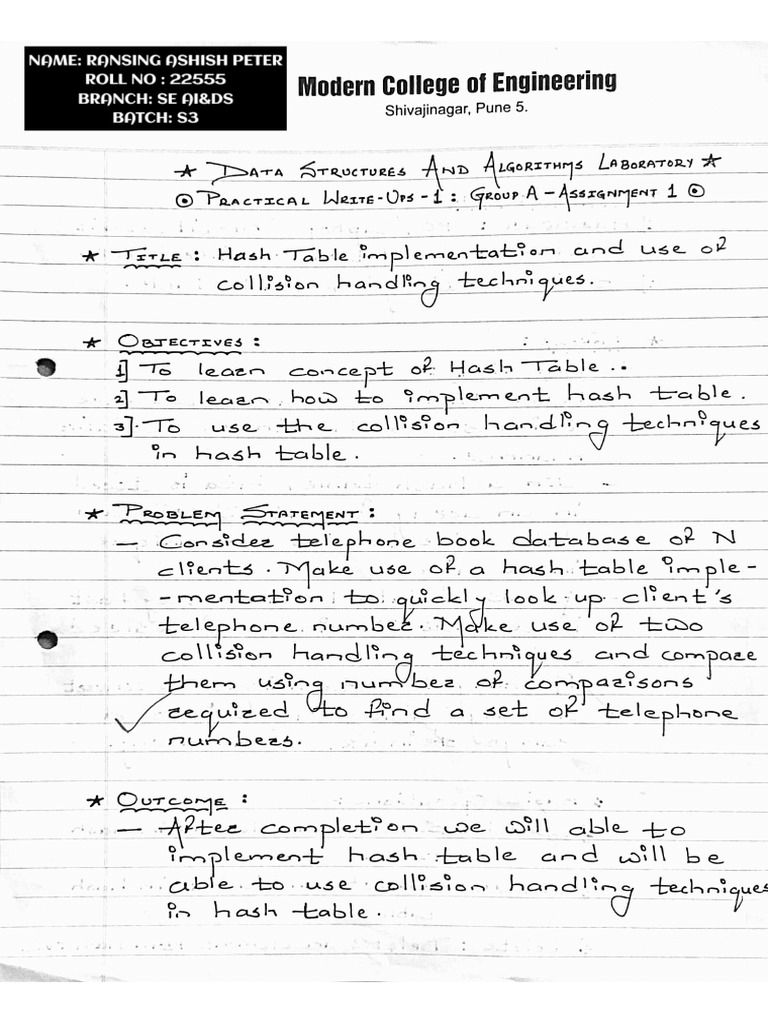 NAME: RANSING ASHISH PETER
ROLL NO : 22555
BRANCH: SE AI&DS
BATCH: S3
Modern College of Engineering
Shivajinagar, Pune 5.
* DATA STRUCTURES AND ALGORITHMS LABORATORY *
⊙ PRACTICAL WRITE-UPS-1 : GROUP A - ASSIGNMENT 1 ⊙
* TITLE : Hash Table implementation and use of
collision handling techniques.
* OBJECTIVES :
1] To learn concept of Hash Table..
2] To learn how to implement hash table.
3] To use the collision handling techniques
in hash table.
* PROBLEM STATEMENT :
- Consider telephone book database of N
clients. Make use of a hash table imple-
-mentation to quickly look up client's
telephone number. Make use of two
collision handling techniques and compare
them using number of comparisons
required to find a set of telephone
numbers.
* OUTCOME :
- After completion we will able to
implement hash table and will be
able to use collision handling techniques
in hash table.